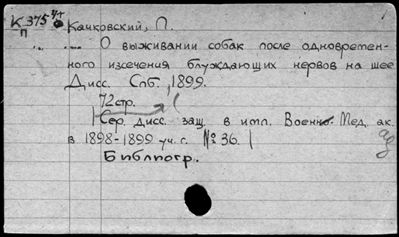 К 375 Качковский, П.
п
О выживании собак после одновремен-
ного изсечения блуждающих нервов на шее
Дисс. Спб., 1899.
72 стр.
(Сер. дисс. защ. в имп. Военно-Мед. ак.
в 1898-1899 уч. г. № 36.)
Библиогр.